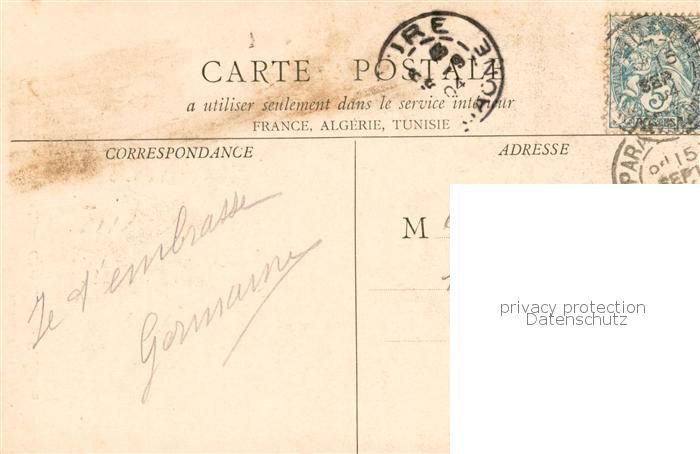 CARTE POSTALE
a utiliser seulement dans le service intérieur
FRANCE, ALGÉRIE, TUNISIE
CORRESPONDANCE
ADRESSE
Je t'embrasse
Germaine
M
privacy protection
Datenschutz
IRE
04
PARA
15
SEPT